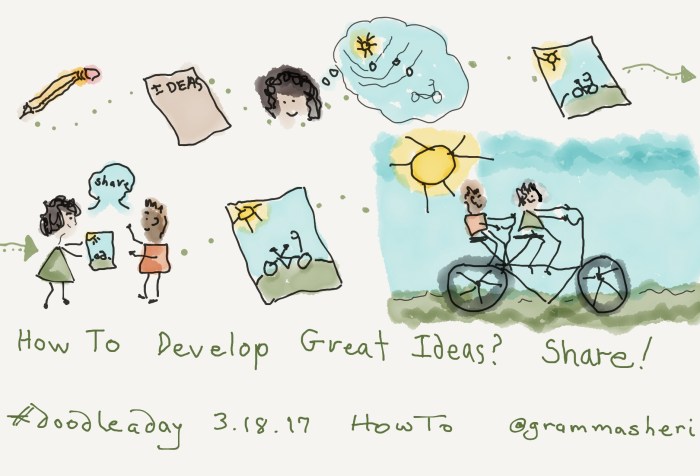 IDEAS
share
How To Develop Great Ideas? Share!
#doodleaday 3.18.17 HowTo @grammasheri